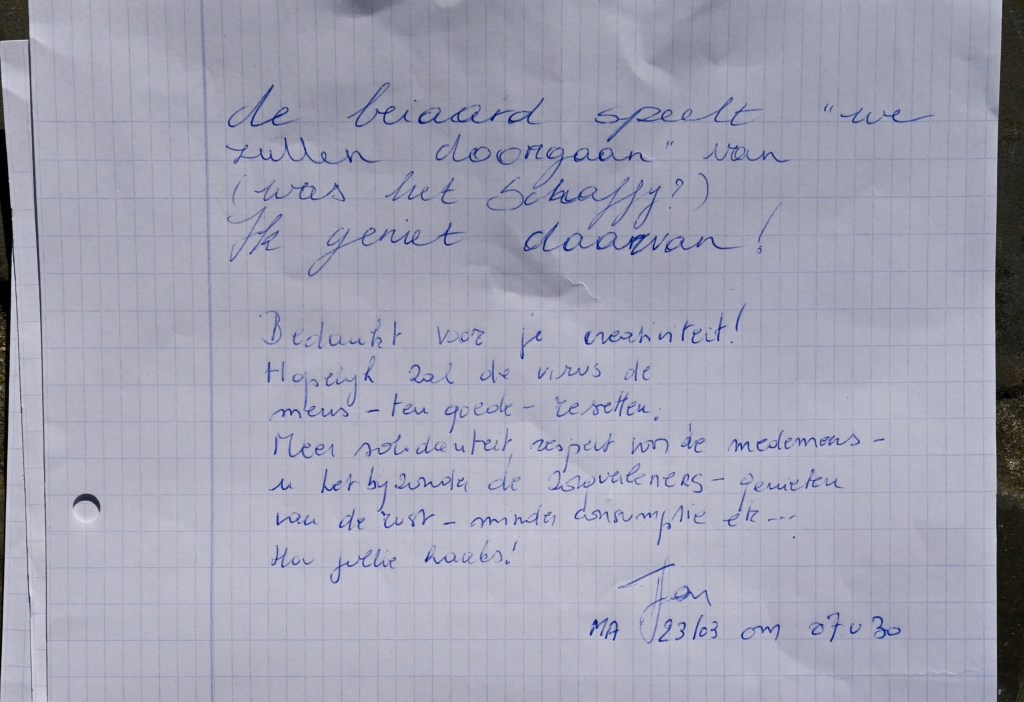 de beiaard speelt "we
zullen doorgaan" van
(was het Schaffy?)
Ik geniet daarvan!
Bedankt voor je creativiteit!
Hopelijk zal de virus de
mens - ten goede - resetten.
Meer solidariteit, respect voor de medemens -
in het byzonder de zorgverleners - genieten
van de rust - minder consumptie etc ...
Hou jullie haaks!
Jan
MA 23/03 om 07u30